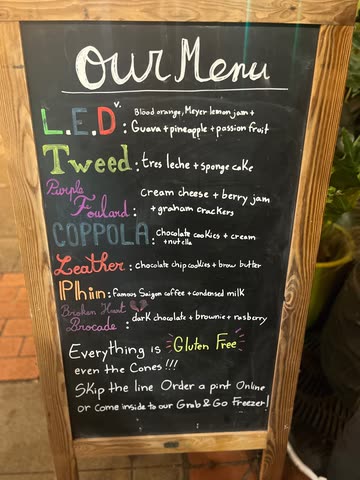 Our Menu
L.E.D v. : Blood orange, Meyer lemon jam +
Guava + pineapple + passion fruit
Tweed : tres leche + sponge cake
Purple
Foulard : cream cheese + berry jam
+ graham crackers
COPPOLA : chocolate cookies + cream
+ nutella
Leather : chocolate chip cookies + brow butter
Phin : Famous Saigon coffee + condensed milk
Broken Heart
Brocade : dark chocolate + brownie + rasberry
Everything is Gluten Free
even the Cones!!!
Skip the line Order a pint Online
or come inside to our Grab & Go Freezer!